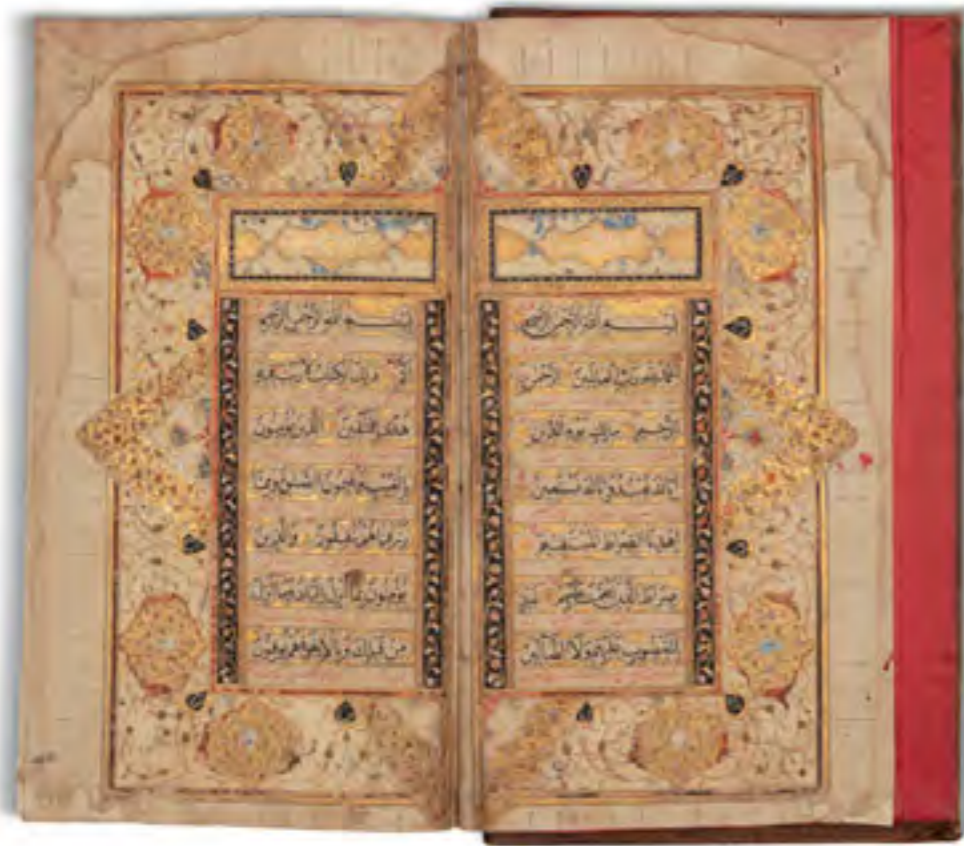 بسم الله الرحمن الرحيم
الحمد لله رب العلمين الرحمن
الرحيم ملك يوم الدين
اياك نعبد واياك نستعين
اهدنا الصراط المستقيم
صراط الذين انعمت عليهم غير
المغضوب عليهم ولا الضالين
بسم الله الرحمن الرحيم
الم ذلك الكتاب لا ريب فيه
هدى للمتقين الذين يؤمنون
بالغيب ويقيمون الصلوة ومما
رزقناهم ينفقون والذين
يؤمنون بما انزل اليك وما انزل
من قبلك وبالاخرة هم يوقنون